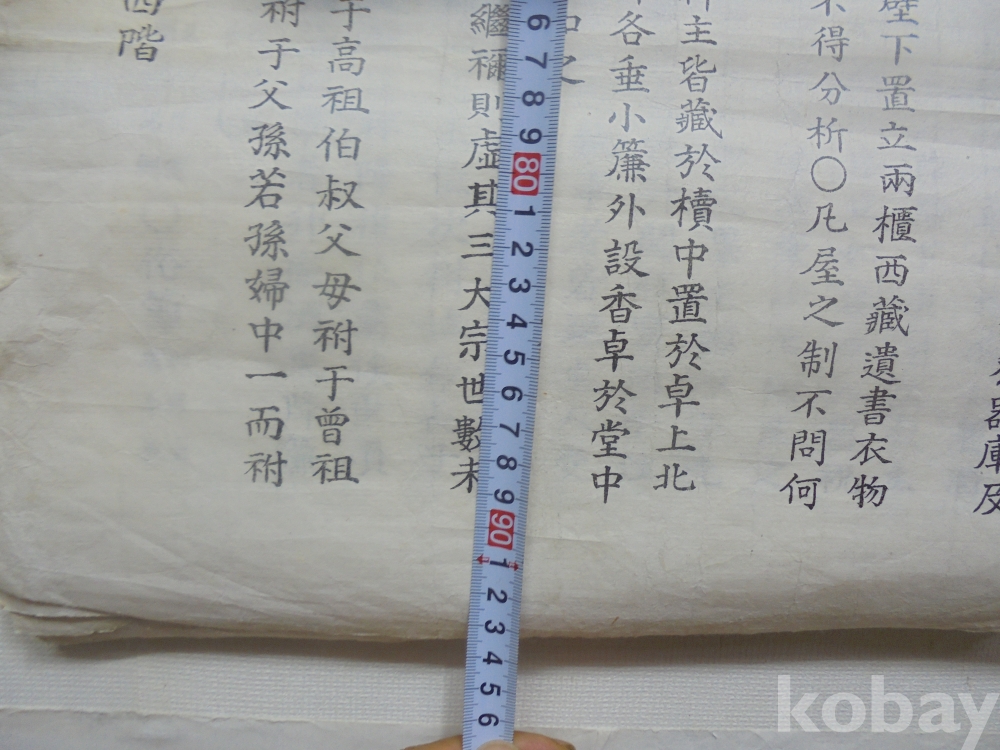 器庫及
壁下置立兩櫃西藏遺書衣物
不得分析〇凡屋之制不問何
主皆藏於櫝中置於卓上北
各垂小簾外設香卓於堂中
之
繼禰則虛其三大宗世數未
于高祖伯叔父母祔于曾祖
祔于父孫若孫婦中一而祔
西階
6
7
8
9
80
1
2
3
4
5
6
7
8
9
90
1
2
3
4
5
6
kobay